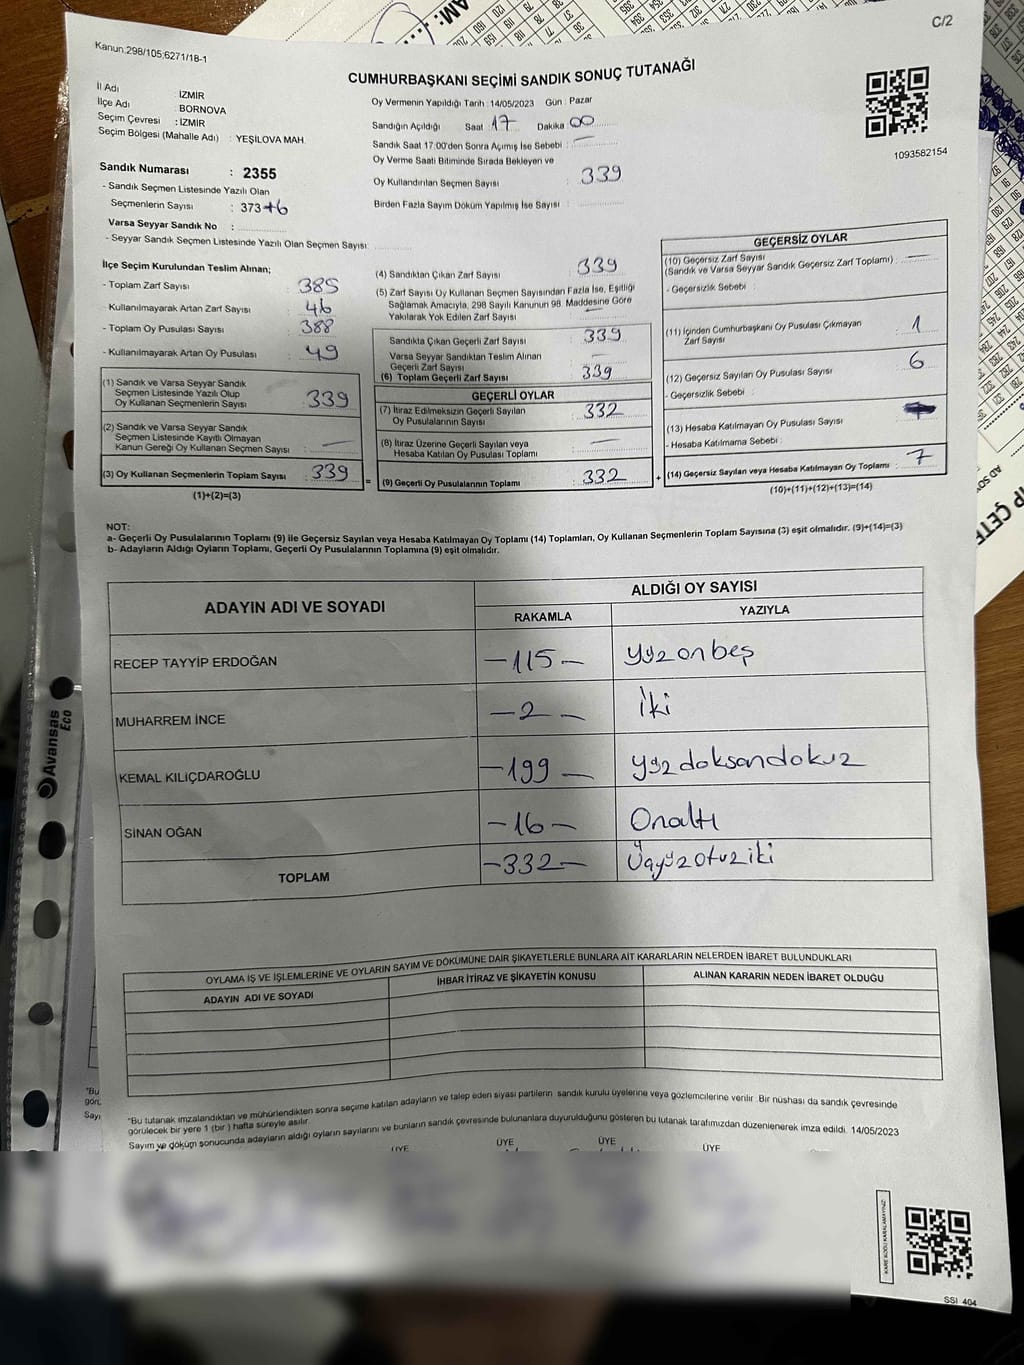 C/2
Kanun:298/105;6271/18-1
CUMHURBAŞKANI SEÇİMİ SANDIK SONUÇ TUTANAĞI
İl Adı : İZMİR
İlçe Adı : BORNOVA
Seçim Çevresi : İZMİR
Seçim Bölgesi (Mahalle Adı) : YEŞİLOVA MAH.
Oy Vermenin Yapıldığı Tarih : 14/05/2023 Gün : Pazar
Sandığın Açıldığı Saat 17 Dakika 00
Sandık Saat 17:00'den Sonra Açımış İse Sebebi : —
Oy Verme Saati Bitiminde Sırada Bekleyen ve
Oy Kullandırılan Seçmen Sayısı : 339
Birden Fazla Sayım Döküm Yapılmış İse Sayısı :
1093582154
Sandık Numarası : 2355
- Sandık Seçmen Listesinde Yazılı Olan
Seçmenlerin Sayısı : 373+6
Varsa Seyyar Sandık No :
- Seyyar Sandık Seçmen Listesinde Yazılı Olan Seçmen Sayısı:
İlçe Seçim Kurulundan Teslim Alınan;
- Toplam Zarf Sayısı : 385
- Kullanılmayarak Artan Zarf Sayısı : 46
- Toplam Oy Pusulası Sayısı : 388
- Kullanılmayarak Artan Oy Pusulası : 49
(1) Sandık ve Varsa Seyyar Sandık
Seçmen Listesinde Yazılı Olup
Oy Kullanan Seçmenlerin Sayısı : 339
(2) Sandık ve Varsa Seyyar Sandık
Seçmen Listesinde Kayıtlı Olmayan
Kanun Gereği Oy Kullanan Seçmen Sayısı : —
(3) Oy Kullanan Seçmenlerin Toplam Sayısı : 339
(1)+(2)=(3)
(4) Sandıktan Çıkan Zarf Sayısı : 339
(5) Zarf Sayısı Oy Kullanan Seçmen Sayısından Fazla İse, Eşitliği
Sağlamak Amacıyla, 298 Sayılı Kanunun 98. Maddesine Göre
Yakılarak Yok Edilen Zarf Sayısı : —
Sandıkta Çıkan Geçerli Zarf Sayısı : 339
Varsa Seyyar Sandıktan Teslim Alınan
Geçerli Zarf Sayısı : —
(6) Toplam Geçerli Zarf Sayısı : 339
GEÇERLİ OYLAR
(7) İtiraz Edilmeksizin Geçerli Sayılan
Oy Pusulasının Sayısı : 332
(8) İtiraz Üzerine Geçerli Sayılan veya
Hesaba Katılan Oy Pusulası Toplamı : —
= (9) Geçerli Oy Pusulalarının Toplamı : 332 +
GEÇERSİZ OYLAR
(10) Geçersiz Zarf Sayısı
(Sandık ve Varsa Seyyar Sandık Geçersiz Zarf Toplamı) : —
- Geçersizlik Sebebi :
(11) İçinden Cumhurbaşkanı Oy Pusulası Çıkmayan
Zarf Sayısı : 1
(12) Geçersiz Sayılan Oy Pusulası Sayısı : 6
- Geçersizlik Sebebi :
(13) Hesaba Katılmayan Oy Pusulası Sayısı :
- Hesaba Katılmama Sebebi :
(14) Geçersiz Sayılan veya Hesaba Katılmayan Oy Toplamı : 7
(10)+(11)+(12)+(13)=(14)
NOT:
a- Geçerli Oy Pusulalarının Toplamı (9) ile Geçersiz Sayılan veya Hesaba Katılmayan Oy Toplamı (14) Toplamları, Oy Kullanan Seçmenlerin Toplam Sayısına (3) eşit olmalıdır. (9)+(14)=(3)
b- Adayların Aldığı Oyların Toplamı, Geçerli Oy Pusulalarının Toplamına (9) eşit olmalıdır.
ADAYIN ADI VE SOYADI ALDIĞI OY SAYISI
RAKAMLA YAZIYLA
RECEP TAYYİP ERDOĞAN —115— yüzonbeş
MUHARREM İNCE —2— İki
KEMAL KILIÇDAROĞLU —199— yüzdoksandokuz
SİNAN OĞAN —16— Onaltı
TOPLAM —332— Üçyüzotuziki
OYLAMA İŞ VE İŞLEMLERİNE VE OYLARIN SAYIM VE DÖKÜMÜNE DAİR ŞİKAYETLERLE BUNLARA AİT KARARLARIN NELERDEN İBARET BULUNDUKLARI
ADAYIN ADI VE SOYADI İHBAR İTİRAZ VE ŞİKAYETİN KONUSU ALINAN KARARIN NEDEN İBARET OLDUĞU
*Bu tutanak imzalandıktan ve mühürlendikten sonra seçime katılan adayların ve talep eden siyasi partilerin sandık kurulu üyelerine veya gözlemcilerine verilir. Bir nüshası da sandık çevresinde
görülecek bir yere 1 (bir) hafta süreyle asılır.
Sayım ve döküm sonucunda adayların aldığı oyların sayılarını ve bunların sandık çevresinde bulunanlara duyurulduğunu gösteren bu tutanak tarafımızdan düzenlenerek imza edildi. 14/05/2023
ÜYE ÜYE ÜYE ÜYE
KARE KODU KARALAMAYINIZ
SSI 404
Avansas
Eco